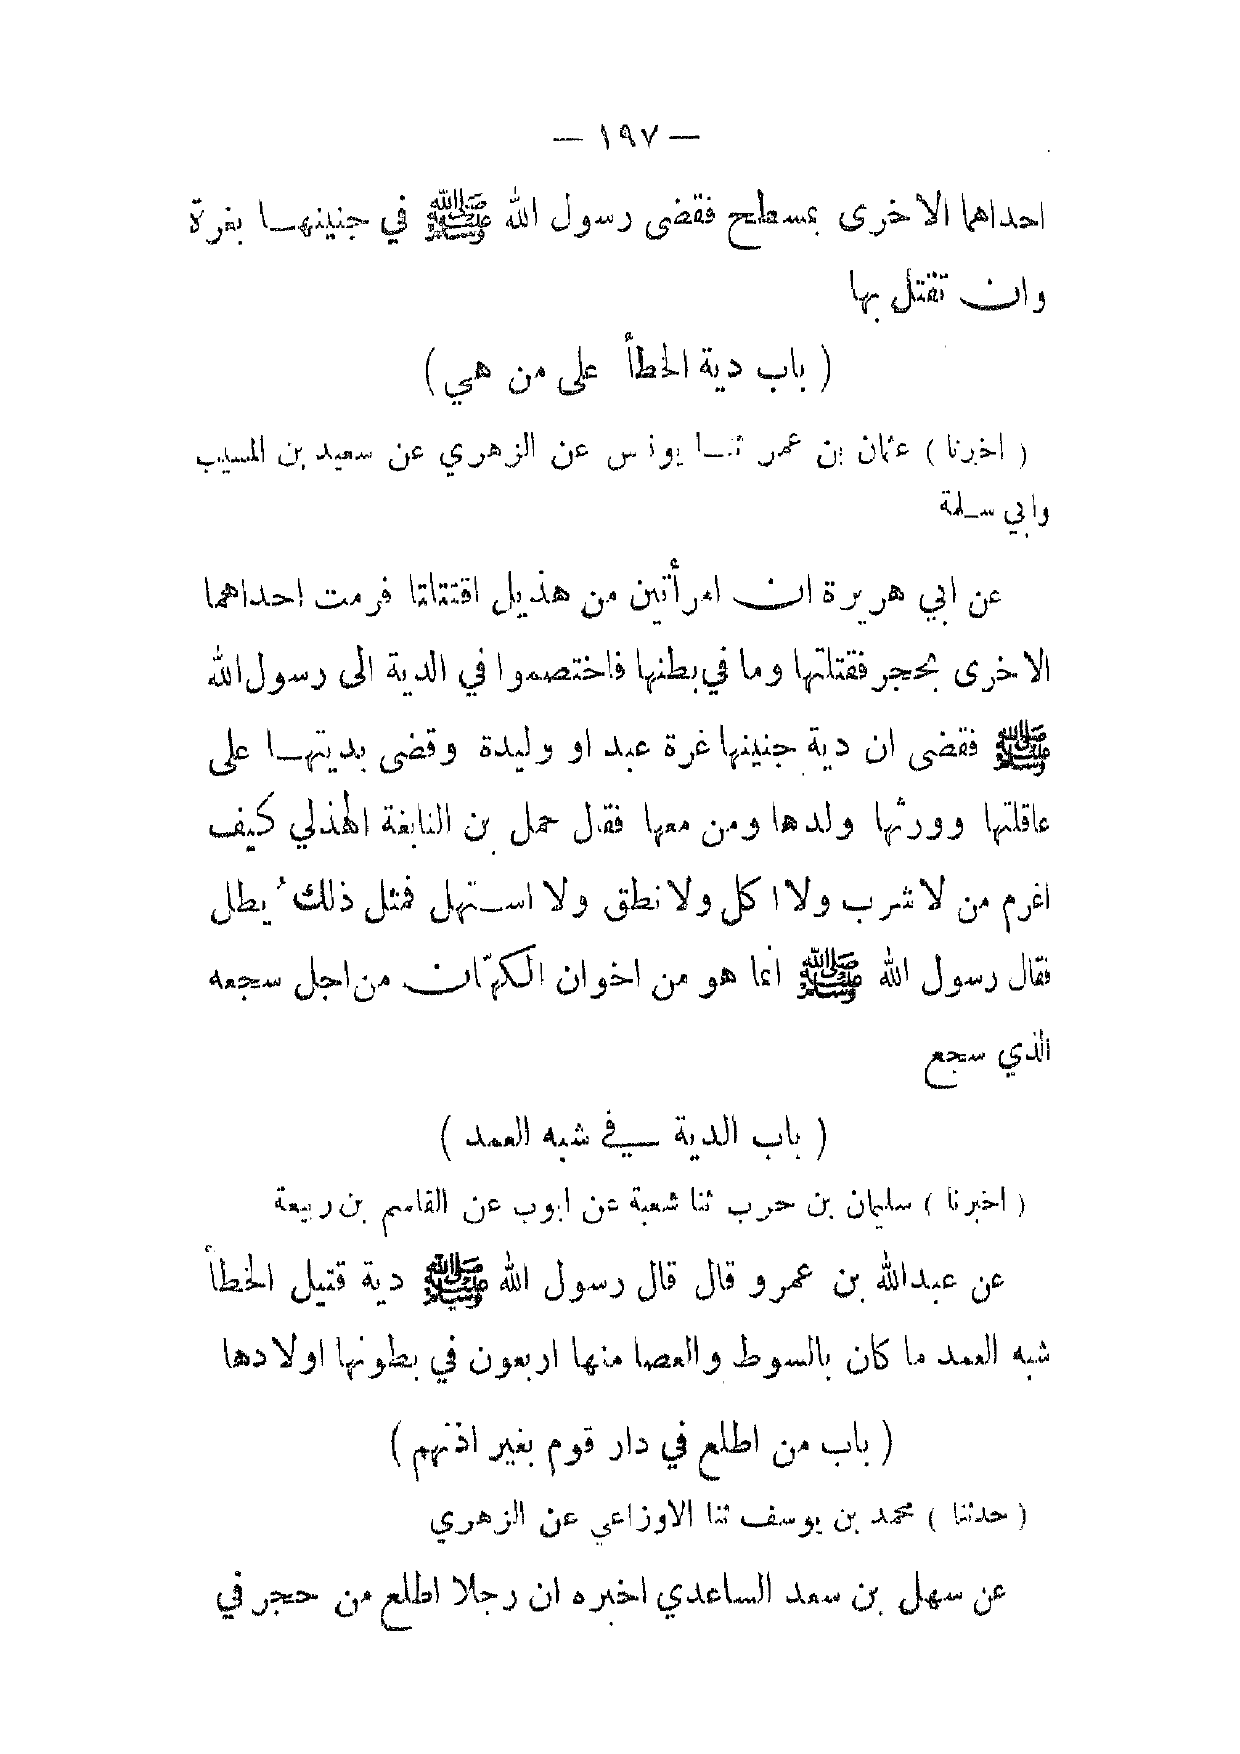 — ١٩٧ —
احداهما الاخرى بمسطح فقضى رسول الله ﷺ في جنينها بغرة
وان تقتل بها
( باب دية الخطأ على من هي )
( اخبرنا ) عثمان بن عمر ثنا يونس عن الزهري عن سعيد بن المسيب
وابي سلمة
عن ابي هريرة ان امرأتين من هذيل اقتتلتا فرمت احداهما
الاخرى بحجر فقتلتها وما في بطنها فاختصموا في الدية الى رسول الله
ﷺ فقضى ان دية جنينها غرة عبد او وليدة وقضى بديتها على
عاقلتها وورثها ولدها ومن معها فقال حمل بن النابغة الهذلي كيف
اغرم من لا شرب ولا اكل ولا نطق ولا استهل فمثل ذلك ُيطل
فقال رسول الله ﷺ انما هو من اخوان الكهّان من اجل سجعه
الذي سجع
( باب الدية في شبه العمد )
( اخبرنا ) سليمان بن حرب ثنا شعبة عن ايوب عن القاسم بن ربيعة
عن عبدالله بن عمرو قال قال رسول الله ﷺ دية قتيل الخطأ
شبه العمد ما كان بالسوط والعصا منها اربعون في بطونها اولادها
( باب من اطلع في دار قوم بغير اذنهم )
( حدثنا ) محمد بن يوسف ثنا الاوزاعي عن الزهري
عن سهل بن سعد الساعدي اخبره ان رجلا اطلع من حجر في